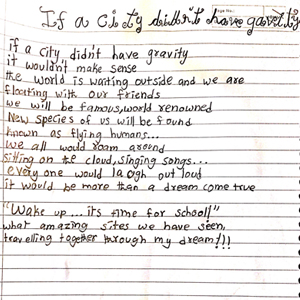 If a city didn't have gavity
if a city didnt have gravity
it wouldn't make sense
the world is waiting outside and we are
floating with our friends
we will be famous, world renowned
New species of us will be found
known as flying humans...
we all would roam around
sitting on the cloud, singing songs...
every one would laogh out loud
it would be more than a dream come true
"Wake up... its time for school!"
what amazing sites we have seen,
travelling together through my dream!!!